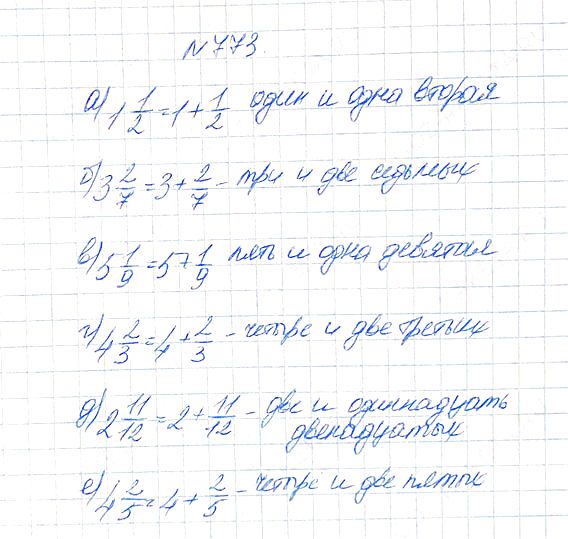 N 773.
а) 1 1/2 = 1 + 1/2 один и одна вторая
б) 3 2/7 = 3 + 2/7 - три и две седьмых
в) 5 1/9 = 5 + 1/9 пять и одна девятая
г) 4 2/3 = 4 + 2/3 - четыре и две третьих
д) 2 11/12 = 2 + 11/12 - две и одиннадцать
двенадцатых
е) 4 2/5 = 4 + 2/5 - четыре и две пятых